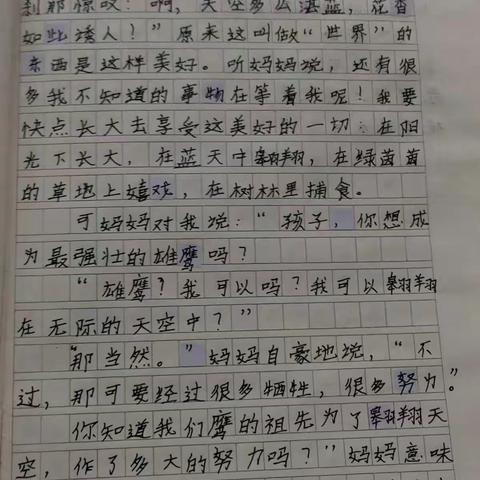 刹那惊叹：“啊，天空多么湛蓝，花香
如此诱人！”原来这叫做“世界”的
东西是这样美好。听妈妈说，还有很
多我不知道的事物在等着我呢！我要
快点长大去享受这美好的一切：在阳
光下长大，在蓝天中翱翔，在绿茵茵
的草地上嬉戏，在树林里捕食。
可妈妈对我说：“孩子，你想成
为最强壮的雄鹰吗？
“雄鹰？我可以吗？我可以翱翔
在无际的天空中？”
“那当然。”妈妈自豪地说，“不
过，那可要经过很多牺牲，很多努力。”
你知道我们鹰的祖先为了翱翔天
空，作了多大的努力吗？”妈妈意味